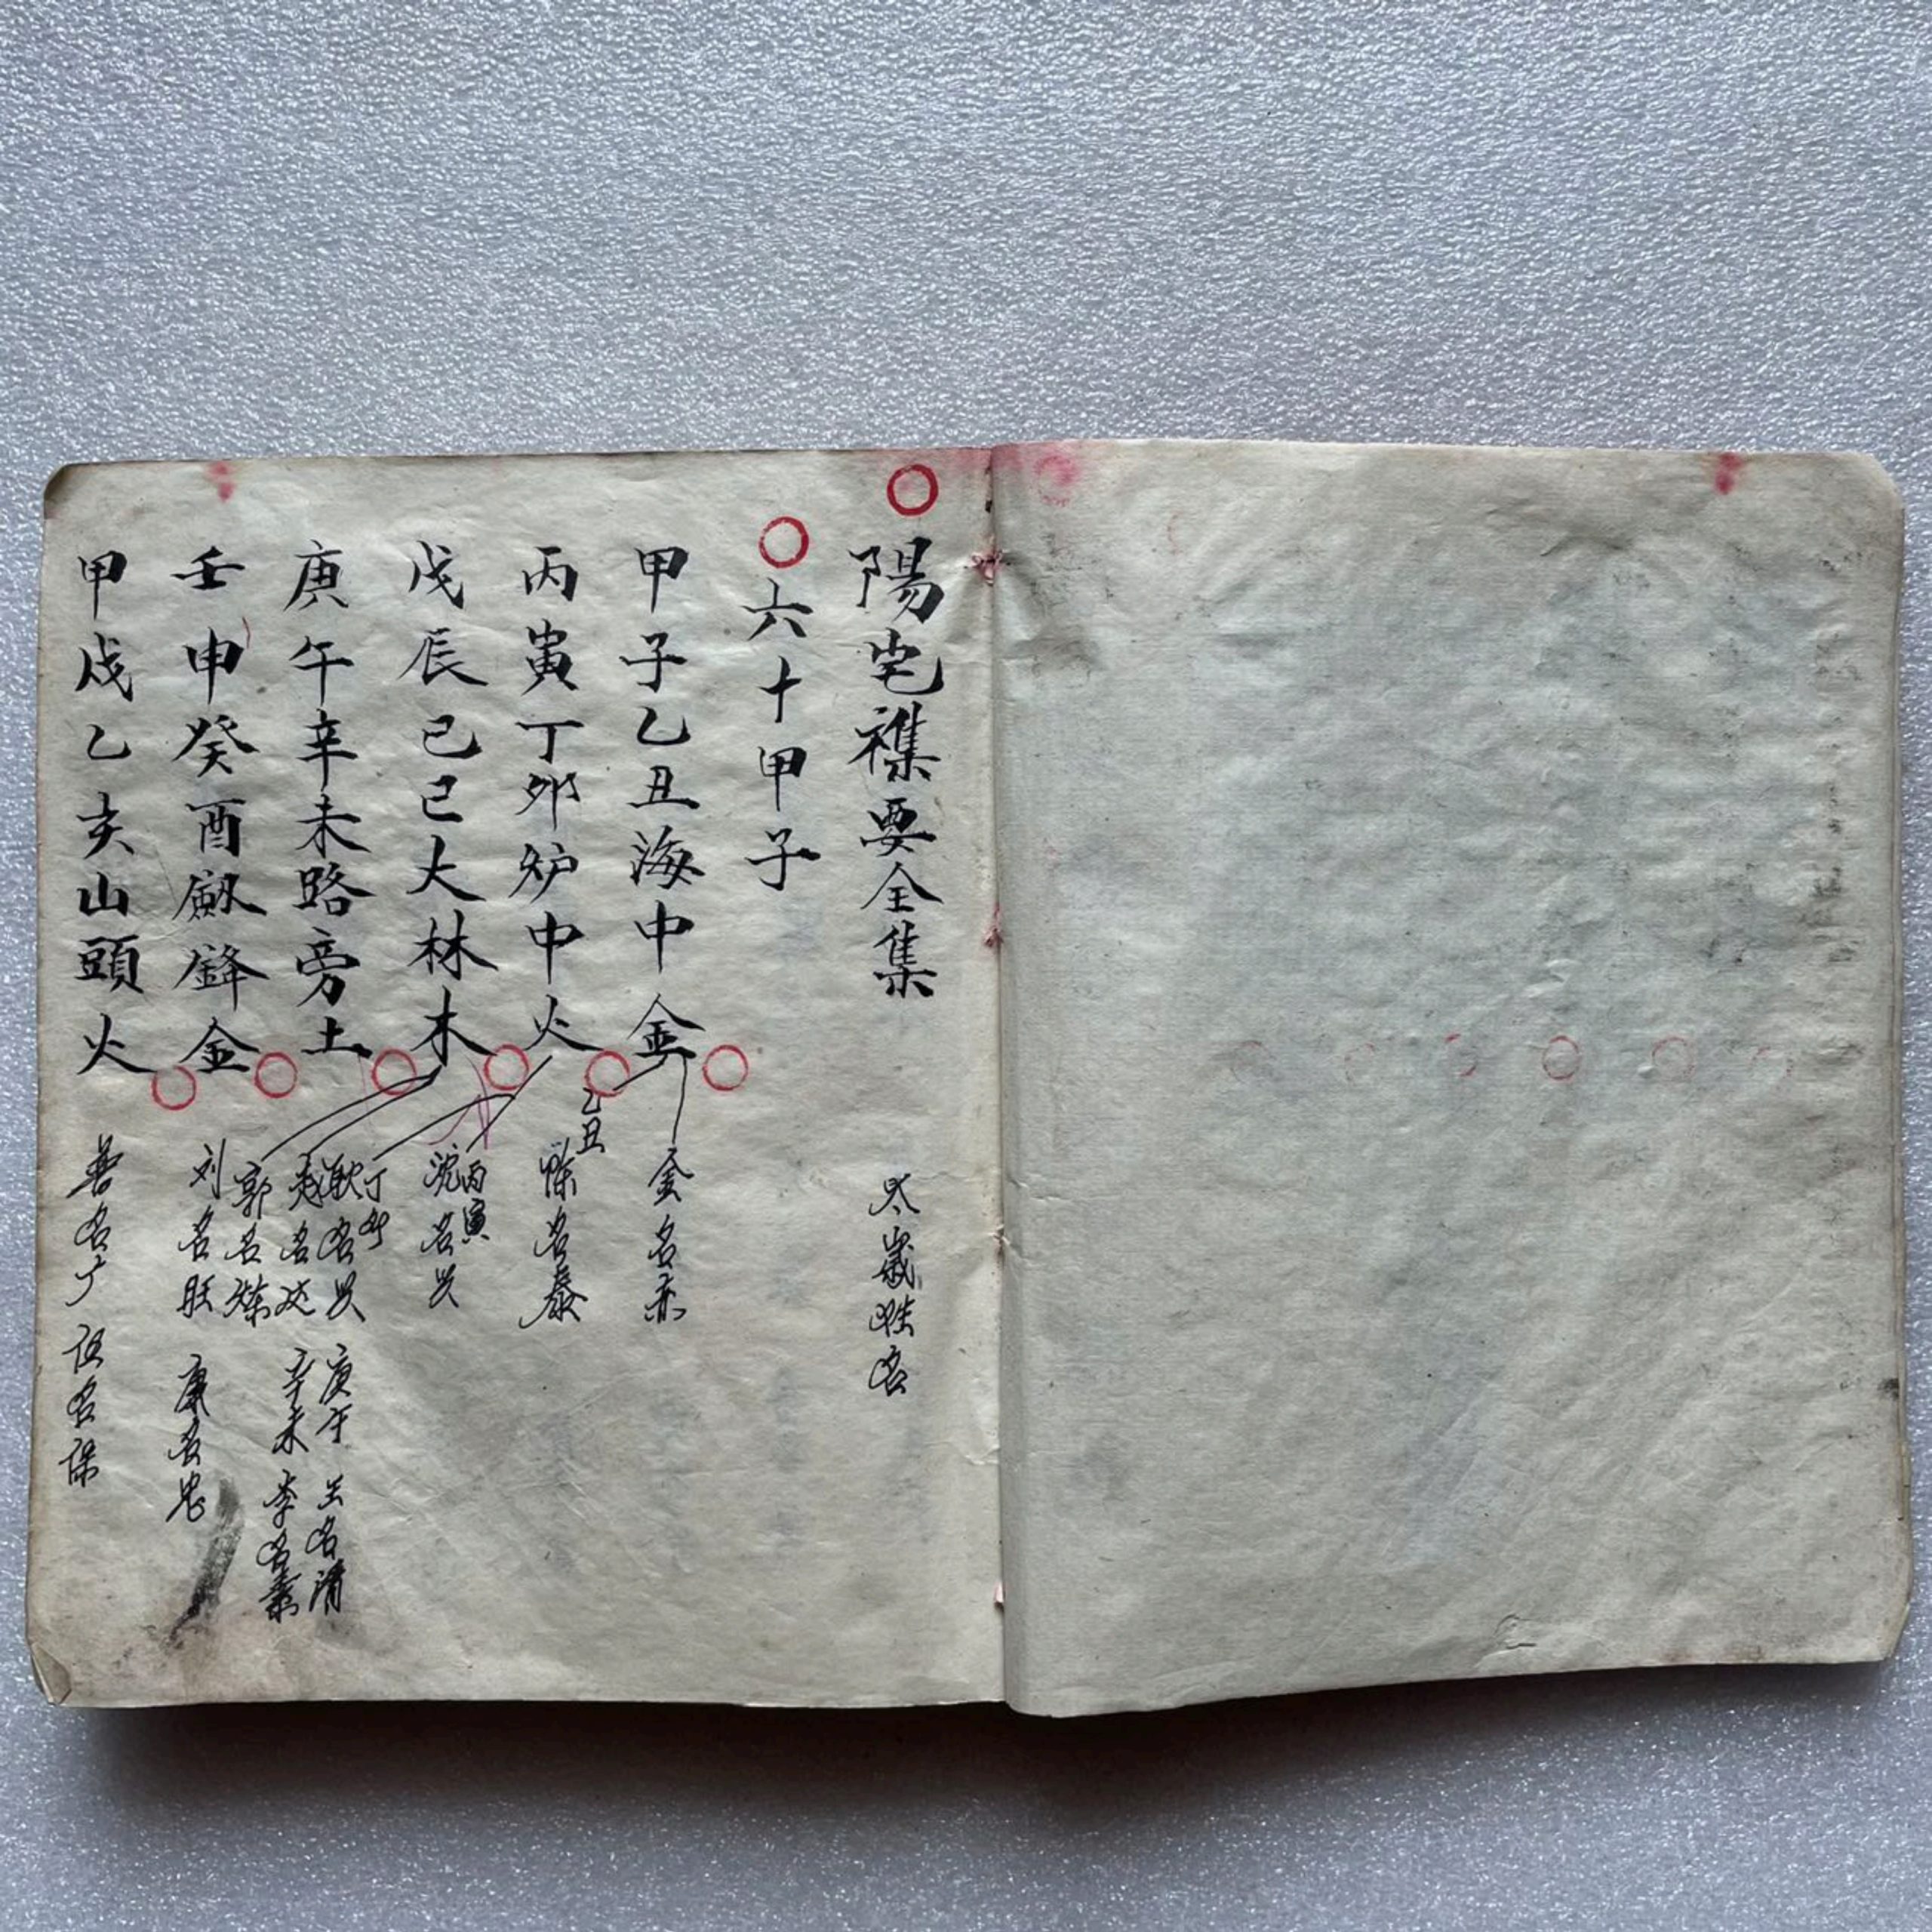 陽宅襍要全集
六十甲子
甲子乙丑海中金
丙寅丁卯炉中火
戊辰己巳大林木
庚午辛未路旁土
壬申癸酉劔鋒金
甲戌乙亥山頭火
太歲姓名
金名赤
乙丑
陳名泰
丙寅
沈名兴
丁卯
耿名兴
赵名达
郭名燦
庚午 王名清
辛未 李名素
刘名旺
康名忠
誓名广
伍名保